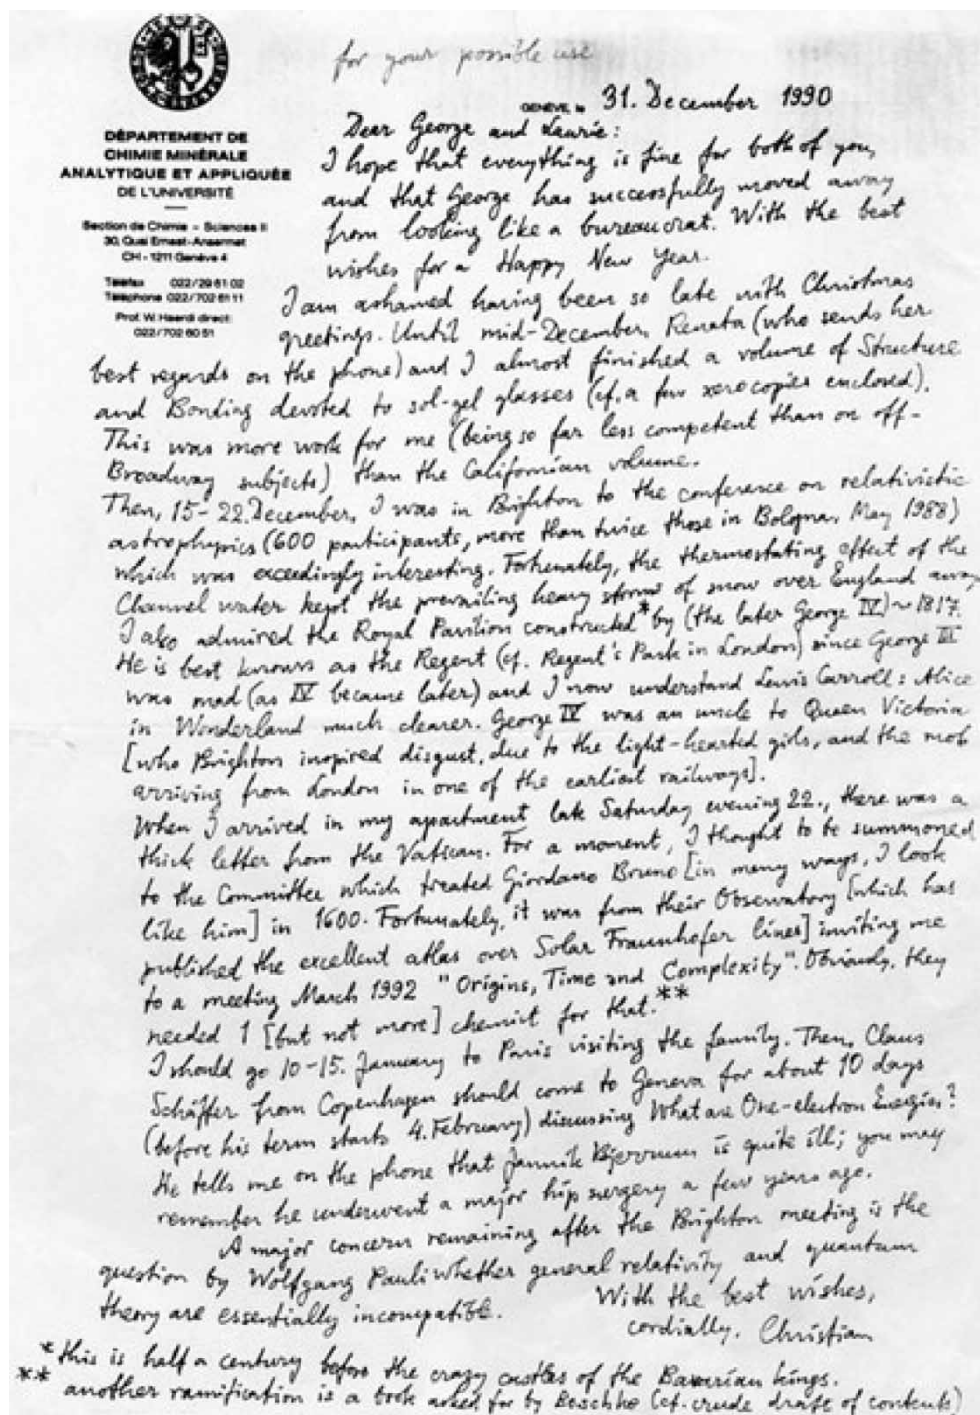 for your possible use
GENÈVE, le 31. December 1990
DÉPARTEMENT DE
CHIMIE MINÉRALE
ANALYTIQUE ET APPLIQUÉE
DE L'UNIVERSITÉ
Section de Chimie – Sciences II
30, Quai Ernest-Ansermet
CH - 1211 Genève 4
Téléfax 022/29 61 02
Téléphone 022/702 61 11
Prof. W. Haerdi direct:
022/702 60 51
Dear George and Laurie:
I hope that everything is fine for both of you,
and that George has successfully moved away
from looking like a bureaucrat. With the best
wishes for a Happy New Year.
I am ashamed having been so late with Christmas
greetings. Until mid-December, Renata (who sends her
best regards on the phone) and I almost finished a volume of Structure
and Bonding devoted to sol-gel glasses (cf. a few xerocopies enclosed).
This was more work for me (being so far less competent than on off-
Broadway subjects) than the Californian volume.
Then, 15-22. December, I was in Brighton to the conference on relativistic
astrophysics (600 participants, more than twice those in Bologna, May 1988)
which was exceedingly interesting. Fortunately, the thermostating effect of the
Channel water kept the prevailing heavy storms of snow over England away
I also admired the Royal Pavilion constructed* by (the later George IV) ~ 1817.
He is best known as the Regent (cf. Regent's Park in London) since George III
was mad (as IV became later) and I now understand Lewis Carroll: Alice
in Wonderland much clearer. George IV was an uncle to Queen Victoria
[who Brighton inspired disgust, due to the light-hearted girls, and the mob
arriving from London in one of the earliest railways].
When I arrived in my apartment late Saturday evening 22., there was a
thick letter from the Vatican. For a moment, I thought to be summoned
to the Committee which treated Giordano Bruno [in many ways, I look
like him] in 1600. Fortunately, it was from their Observatory [which has
published the excellent atlas over Solar Fraunhofer lines] inviting me
to a meeting March 1992 "Origins, Time and Complexity". Obviously, they
needed 1 [but not more] chemist for that.**
I should go 10-15. January to Paris visiting the family. Then, Claus
Schäffer from Copenhagen should come to Geneva for about 10 days
(before his term starts 4. February) discussing What are One-electron Energies?
He tells me on the phone that Jannik Bjerrum is quite ill; you may
remember he underwent a major hip surgery a few years ago.
A major concern remaining after the Brighton meeting is the
question by Wolfgang Pauli whether general relativity and quantum
theory are essentially incompatible.
With the best wishes,
cordially, Christian
*this is half a century before the crazy castles of the Bavarian kings.
** another ramification is a book asked for by Beschke (cf. crude draft of contents)